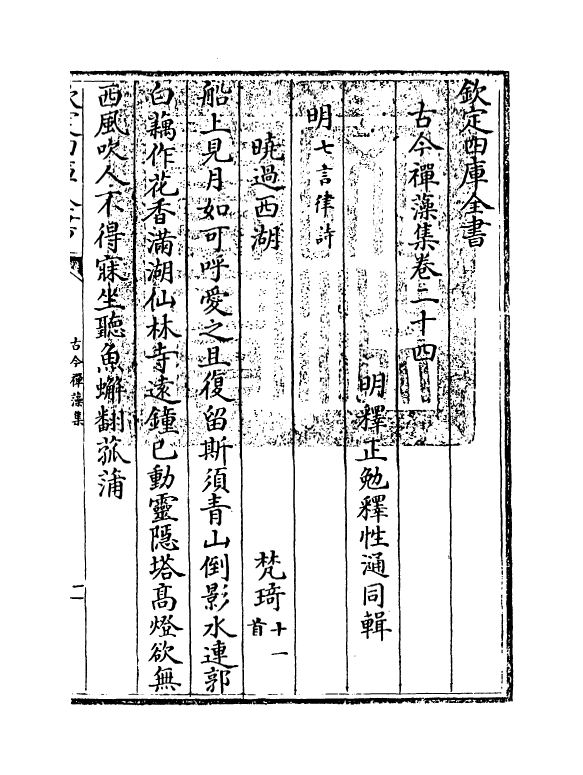 欽定四庫全書
古今禪藻集卷二十四
明釋正勉釋性𣻳同輯
明七言律詩
曉過西湖 梵琦十一首
船上見月如可呼愛之且復留斯須青山倒影水連郭
白藕作花香滿湖仙林寺遠鐘已動靈隱塔髙燈欲無
西風吹人不得寐坐聽魚蠏翻菰蒲
古今禪藻集